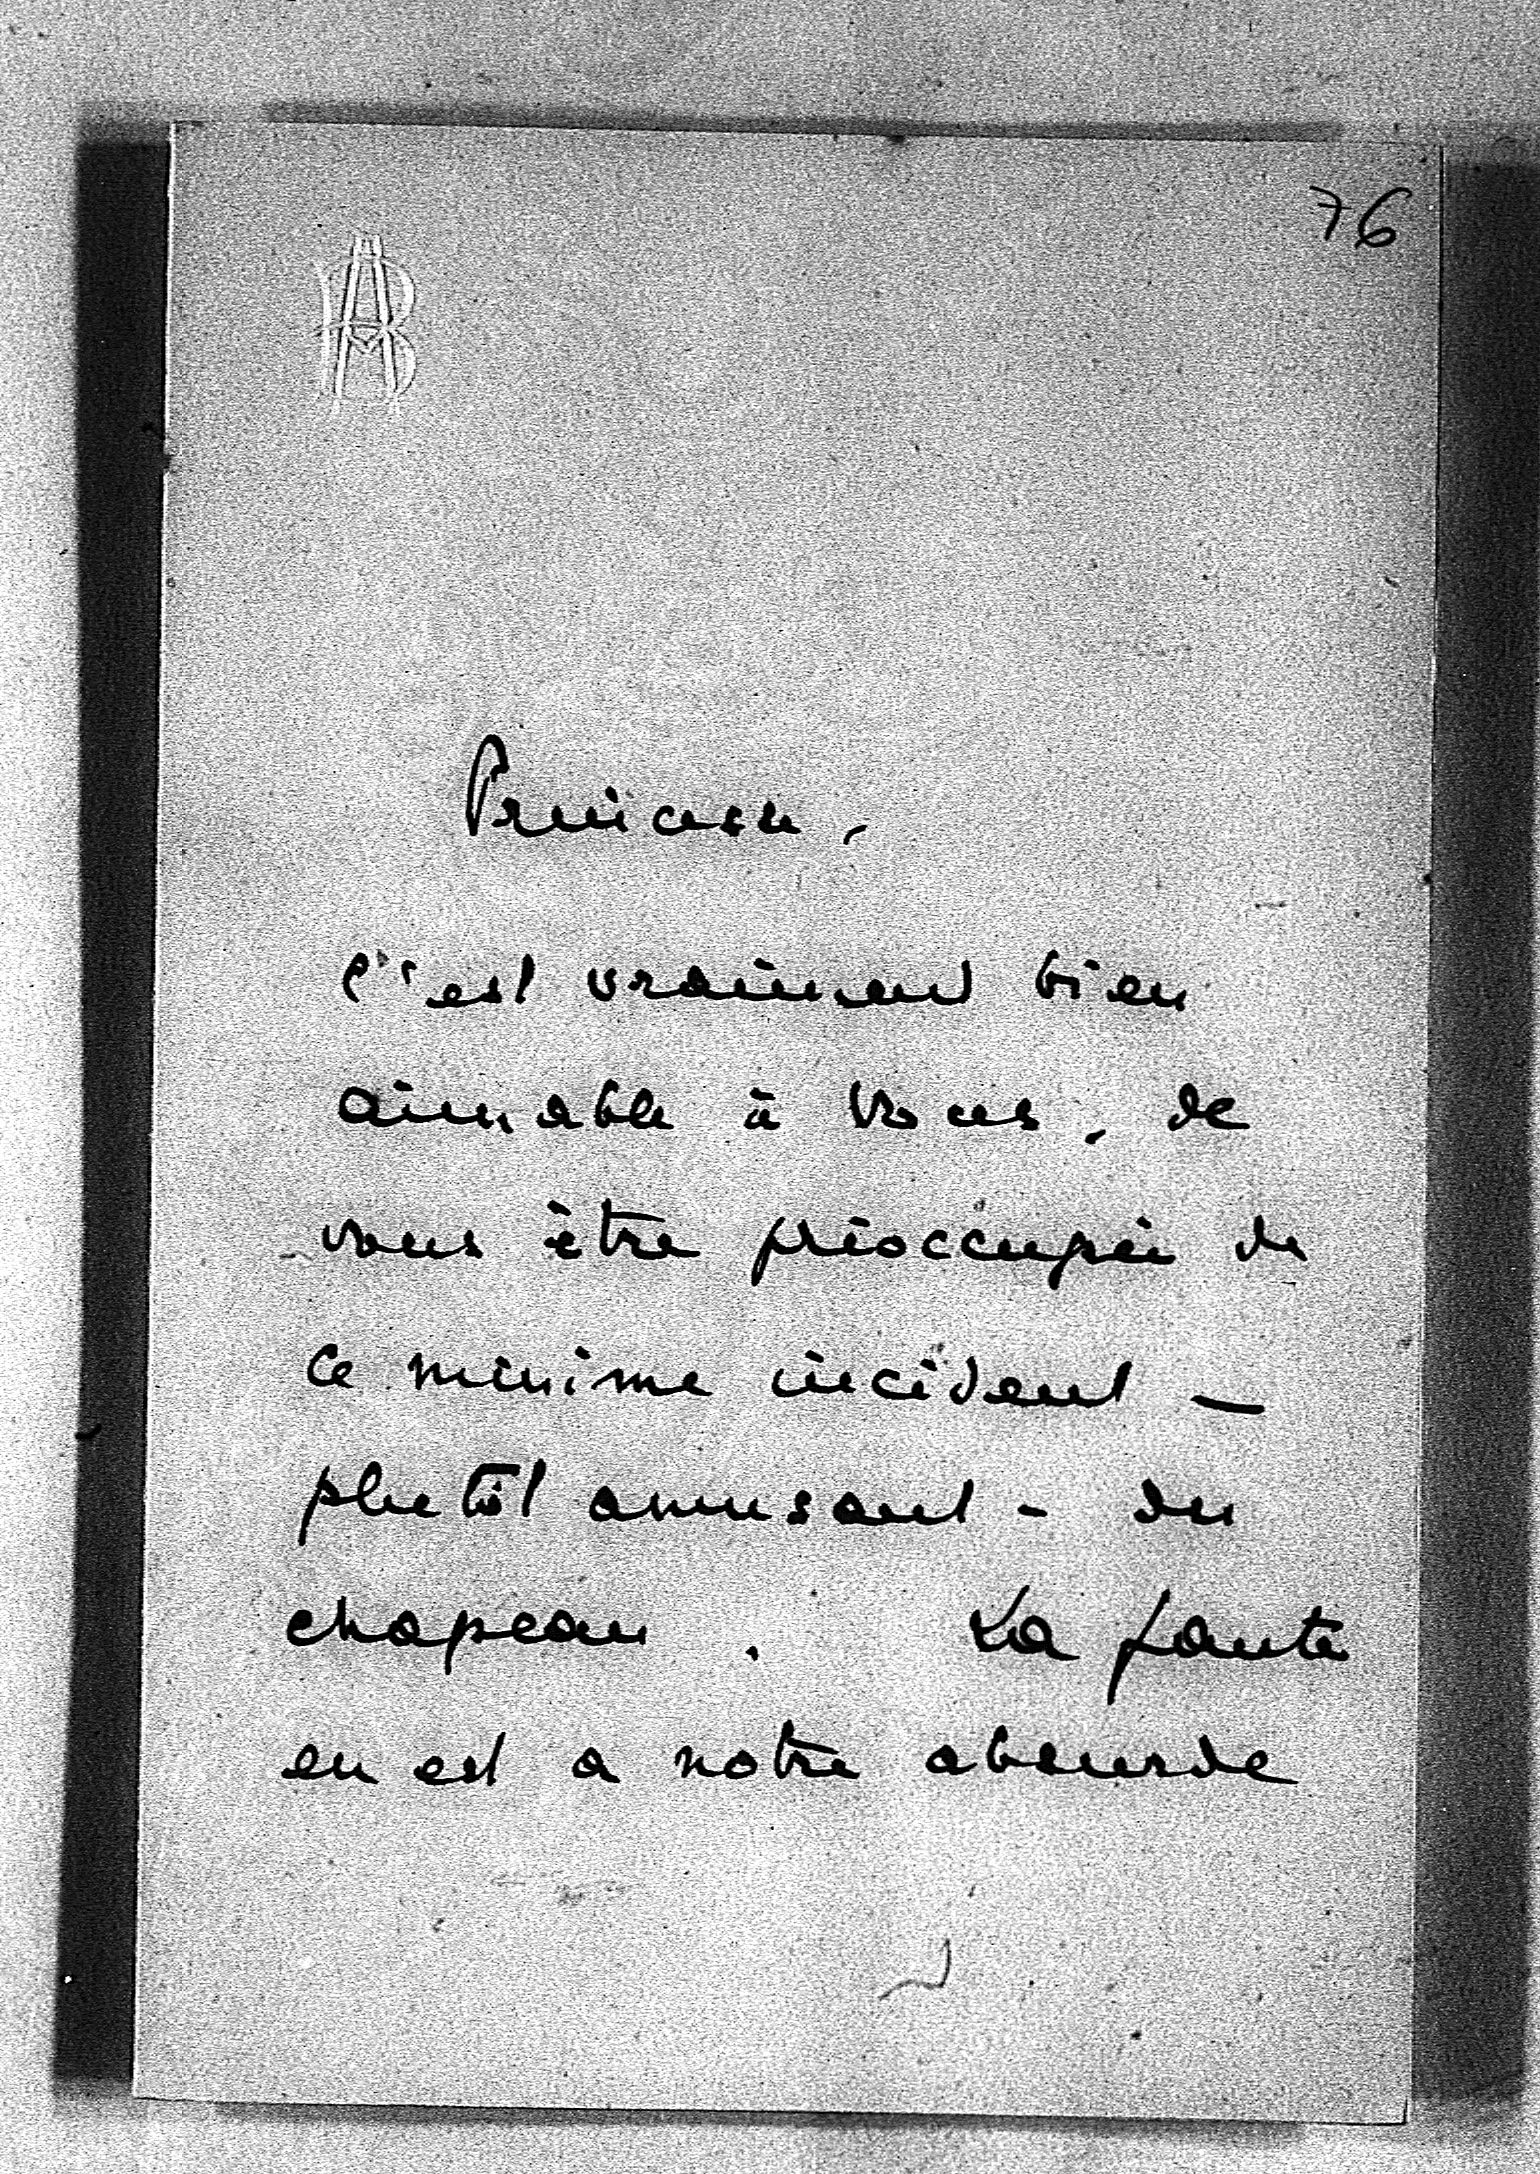 76
AB
Princesse,
C'est vraiment bien
aimable à vous, de
vous être préoccupée de
ce minime incident —
plutôt amusant - du
chapeau. La faute
en est a notre absurde